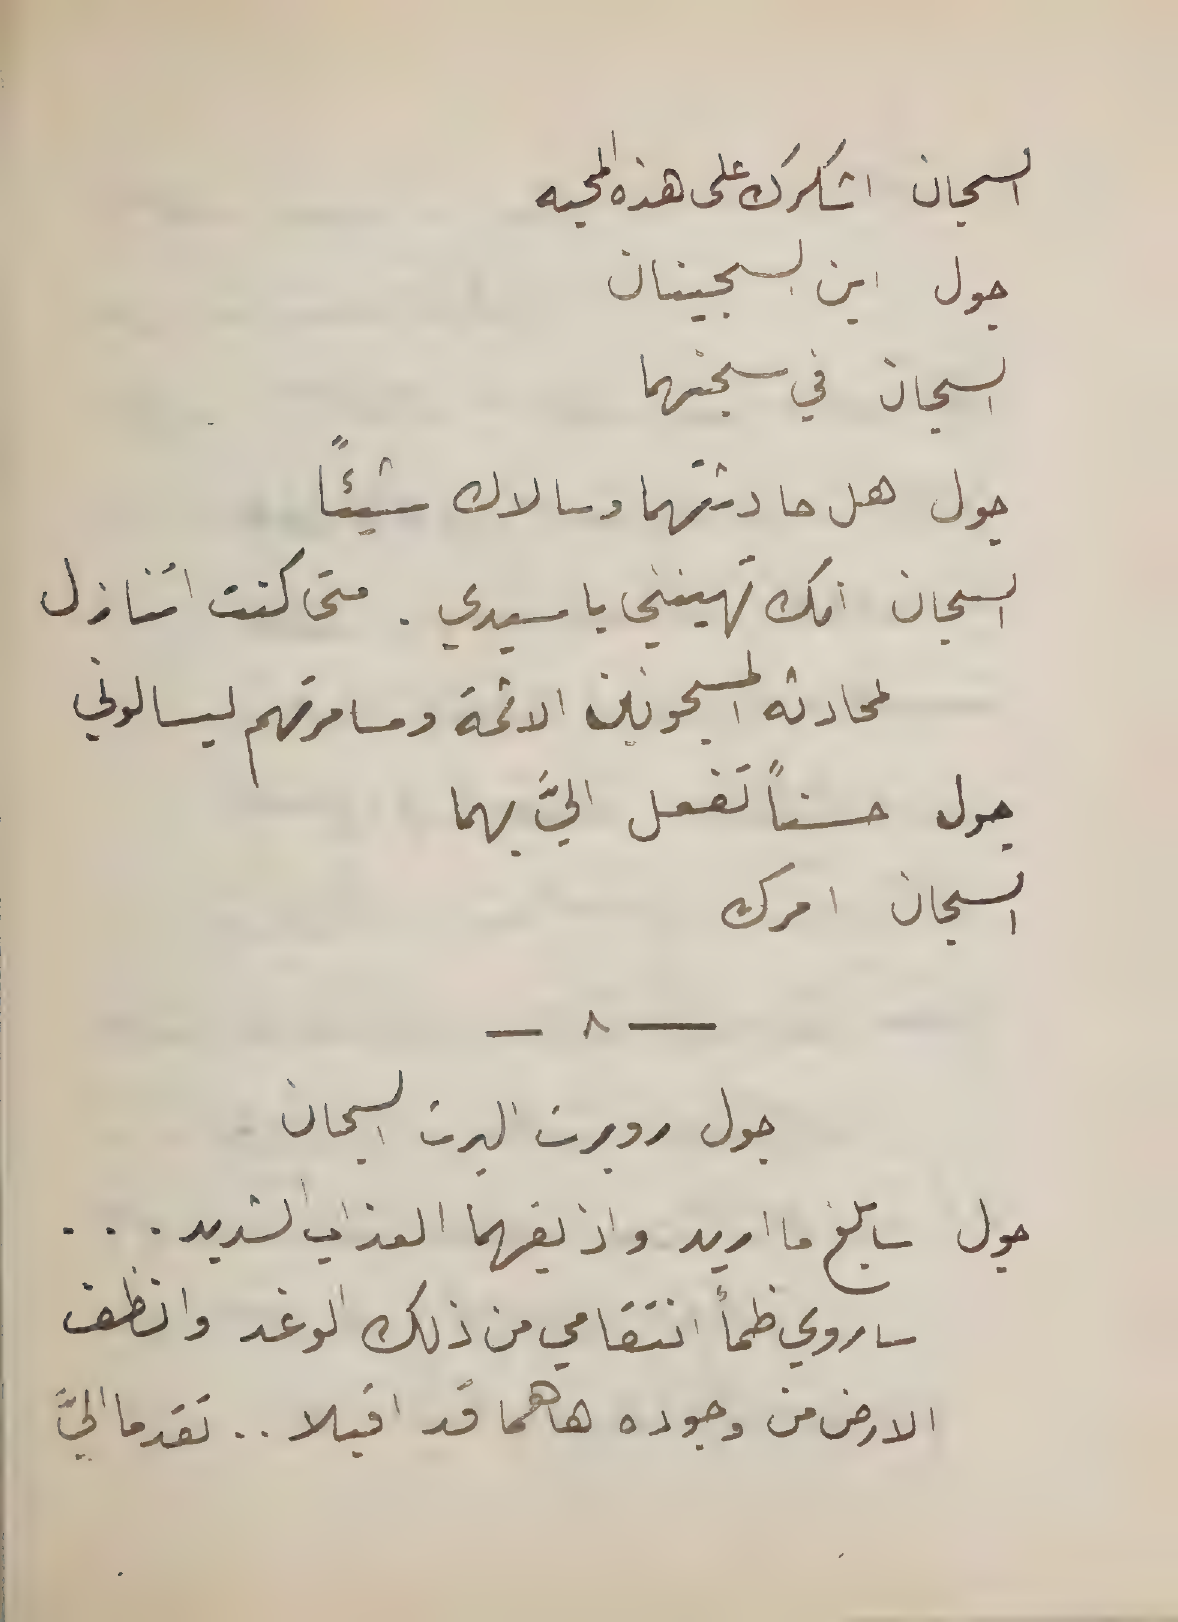 السجان اشكرك على هذه المحبه
جول اين السجينان
السجان في سجنهما
جول هل حادثتهما وسالاك شيئاً
السجان انك تهينني يا سيدي . متى كنت اتنازل
لمحادثه المسجونين الاثمة ومسامرتهم ليسالوني
جول حسناً تفعل اليَّ بهما
السجان امرك
— ٨ —
جول روبرت البرت السجان
جول سابلغ ما اريد واذيقهما العذاب الشديد . . .
ساروي ظمأ انتقامي من ذلك الوغد وانظف
الارض من وجوده هاهما قد اقبلا .. تقدما اليَّ